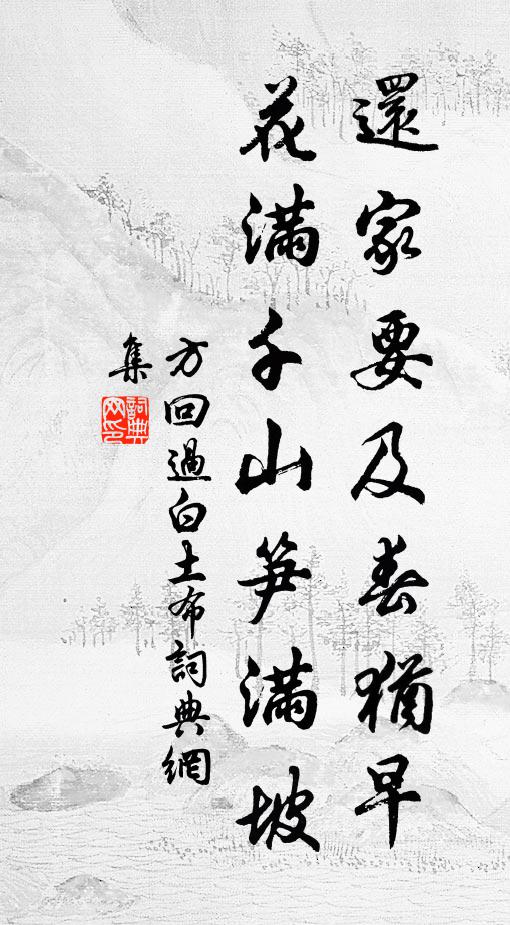 還家要及春猶早
花滿千山笋滿坡
方回過白土布詞典網
集
詞典网印